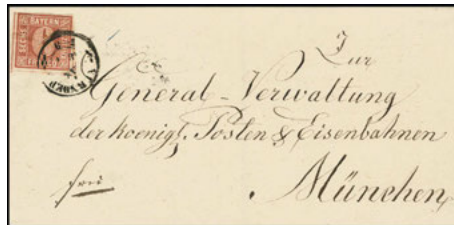 BAYERN
SECHS
Zur
General-Verwaltung
der koenigl. Posten & Eisenbahnen
frei
München